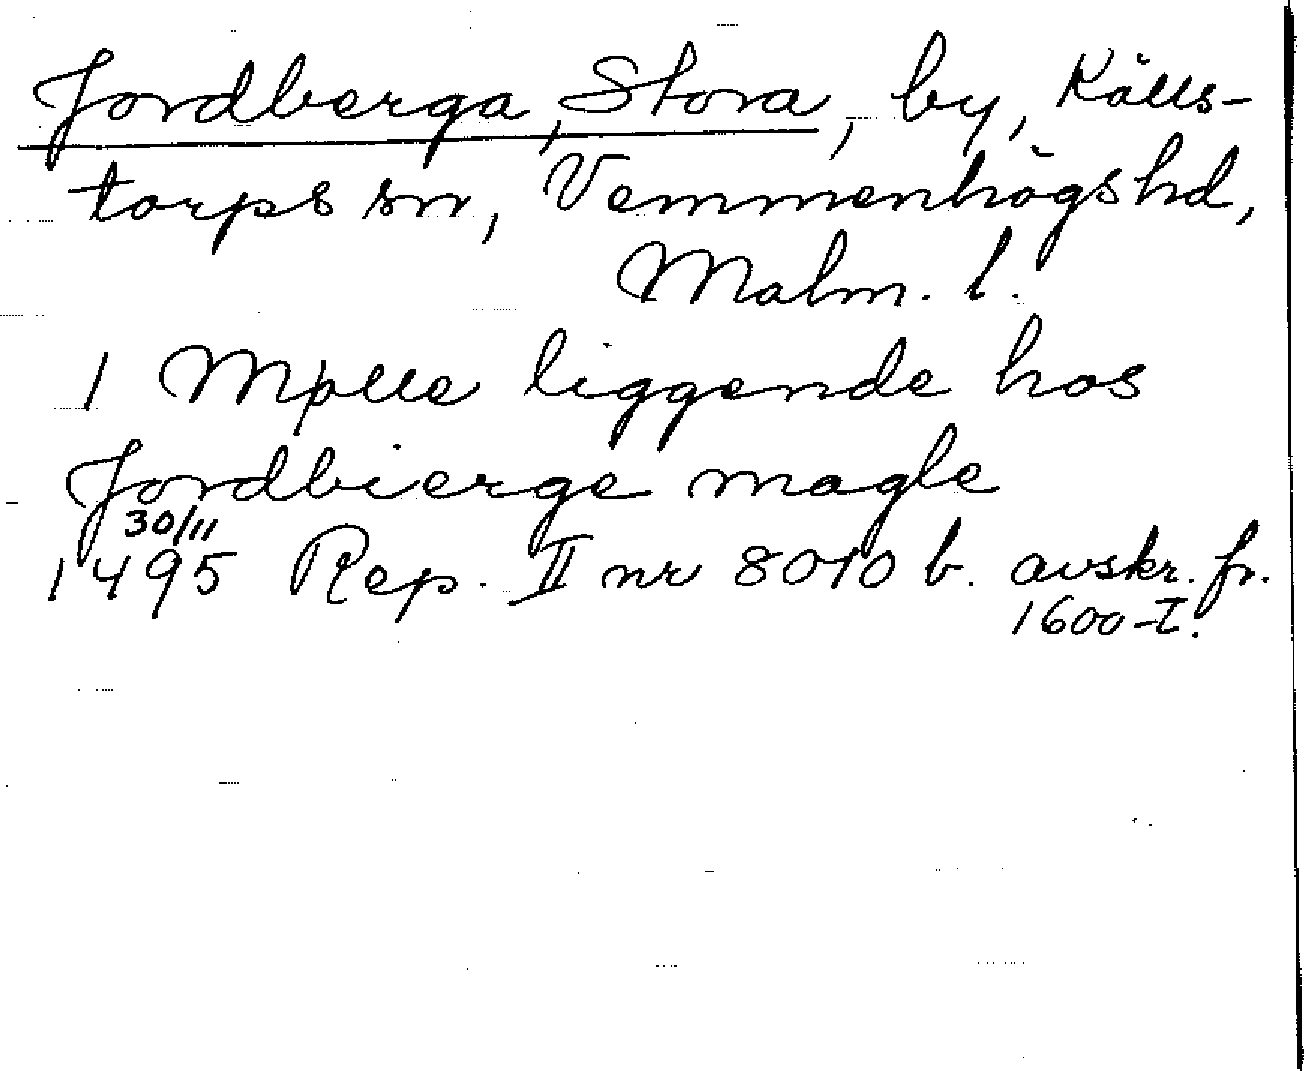 Jordberga, Stora, by, Källs-
torps sn, Vemmenhögs hd,
Malm. l.
1 Mølle liggende hos
Jordbierge magle
30/11
1495 Rep. II nr 8010 b. avskr. fr.
1600-t.